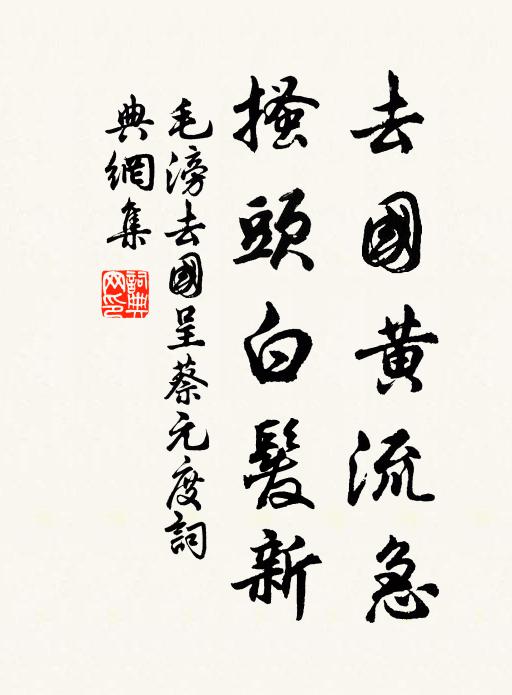 去國黄流急
搔頭白髮新
毛滂去國呈蔡元度詞
典網集
詞典
网印